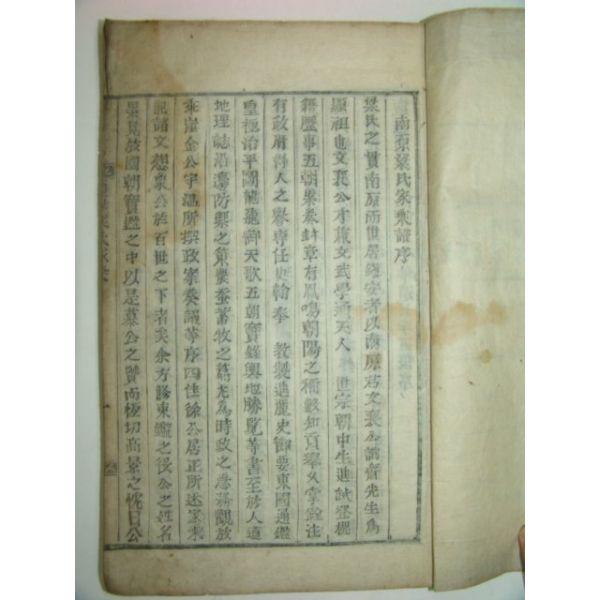 南原梁氏家乘譜序
梁氏之貫南原而世居綾者以南原君文襄公訥齋先生爲
顯祖也文襄公才兼文武學通天人 世宗朝中生進試登槐
籍歷事五朝累參封章有鳳鳴朝陽之稱數知貢擧久掌銓注
有政府得人之譽專任史翰奉 敎製進麗史節要東國通鑑
皇極治平圖龍飛御天歌五朝寶鑑輿地勝覽等書至於人道
地理誌沿邊防禦之策農蚕蓄牧之篇尤爲時政之急務觀於
乖崖金公守溫所撰政案奏議等序四佳徐公居正所述家乘
記諸文想象公於百世之下者矣余方診東鑑之役公之姓名
累見於國朝寶鑑之中以是慕公之贊而極切高景之忱日公